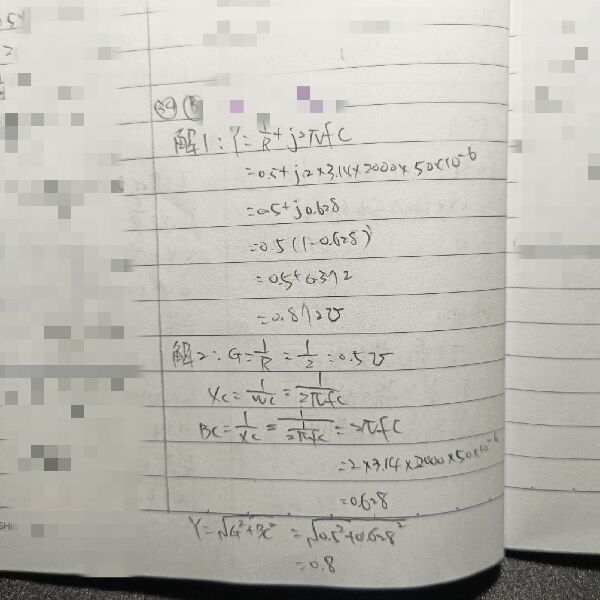 34 B
解1: Y=1/R+j2πfC
=0.5+j2×3.14×2000×50×10⁻⁶
=0.5+j0.628
=0.5(1-0.628)
=0.5+0.372
=0.872℧
解2: G=1/R=1/2=0.5℧
Xc=1/wc=1/2πfC
Bc=1/Xc=1/(1/2πfC)=2πfC
=2×3.14×2000×50×10⁻⁶
=0.628
Y=√G²+Bc² =√0.5²+0.628²
=0.8